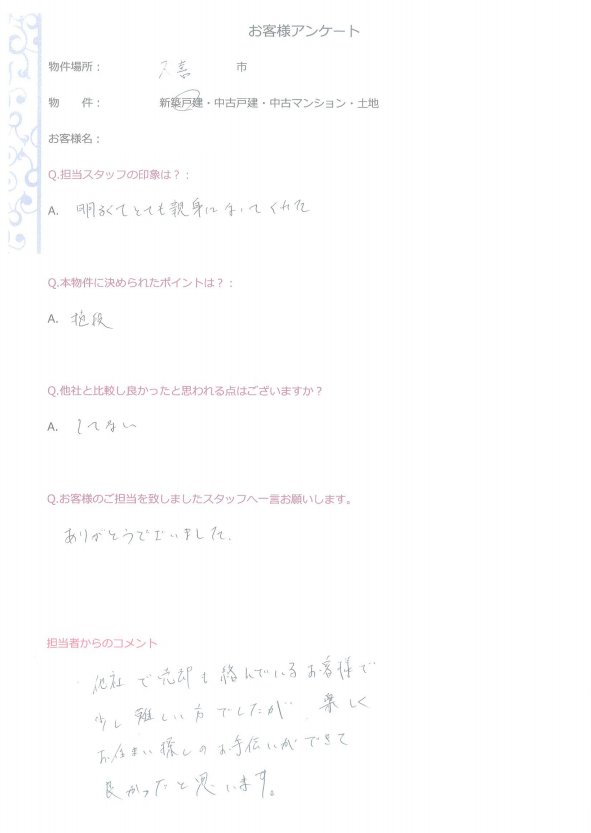 お客様アンケート
物件場所： 久喜 市
物　件： 新築戸建・中古戸建・中古マンション・土地
お客様名：
Q.担当スタッフの印象は？：
A. 明るくてとても親身になってくれた
Q.本物件に決められたポイントは？：
A. 値段
Q.他社と比較し良かったと思われる点はございますか？
A. してない
Q.お客様のご担当を致しましたスタッフへ一言お願いします。
ありがとうございました。
担当者からのコメント
他社で売却も絡んでいるお客様で
少し難しい方でしたが 楽しく
お住まい探しのお手伝いができて
良かったと思います。